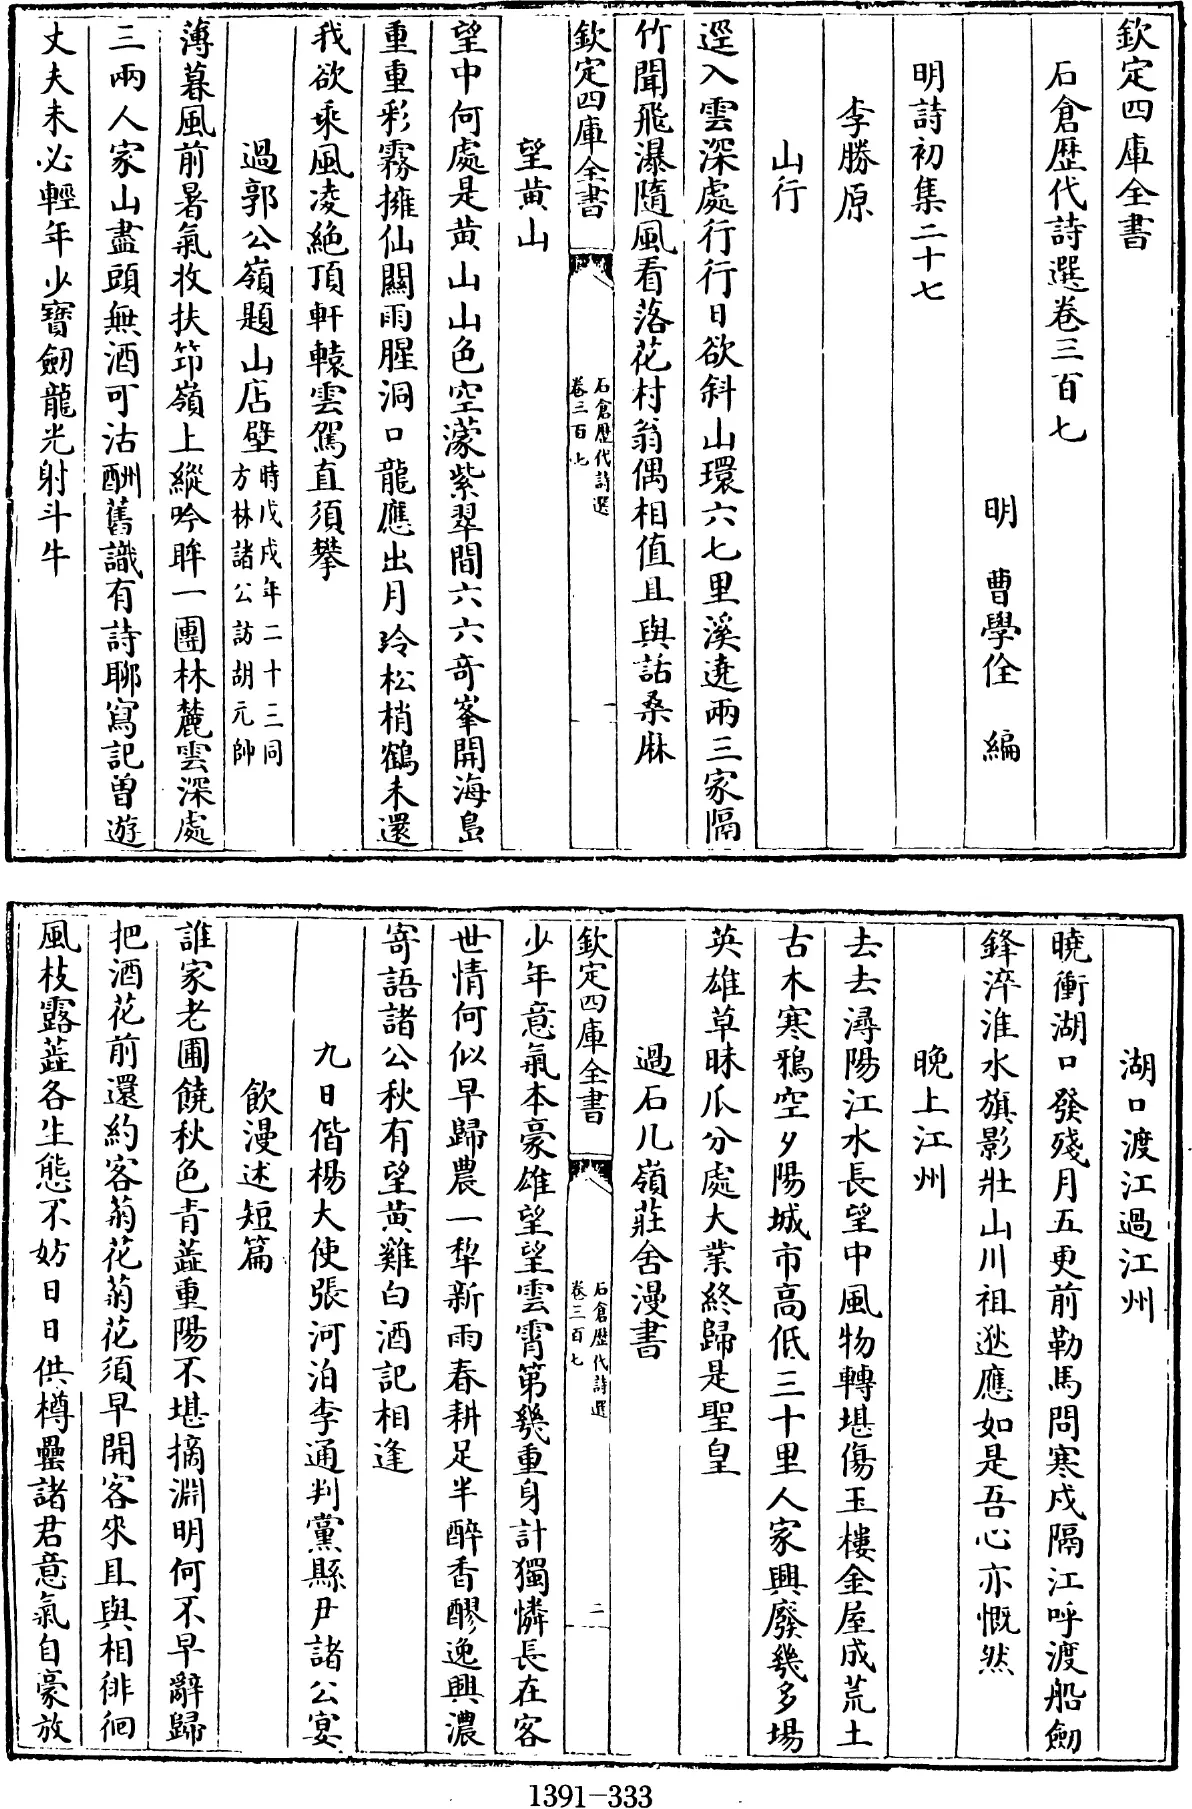 欽定四庫全書
石倉歴代詩選卷三百七
明　曹學佺　編
明詩初集二十七
李勝原
山行
逕入雲深處行行日欲斜山環六七里溪遶兩三家隔
竹聞飛瀑隨風看落花村翁偶相值且與話桑麻
欽定四庫全書
石倉歴代詩選
卷三百七
一
望黄山
望中何處是黄山山色空濛紫翠間六六奇峯開海島
重重彩霧擁仙關雨腥洞口龍應出月玲松梢鶴未還
我欲乘風凌絶頂軒轅雲駕直須攀
過郭公嶺題山店壁
時戊戌年二十三同
方林諸公訪胡元帥
薄暮風前暑氣收扶笻嶺上縱吟眸一團林麓雲深處
三兩人家山盡頭無酒可沽酬舊識有詩聊寫記曽遊
丈夫未必輕年少寶劒龍光射斗牛
湖口渡江過江州
曉衝湖口發殘月五更前勒馬問寒戍隔江呼渡船劒
鋒淬淮水旗影壯山川祖逖應如是吾心亦慨然
晚上江州
去去潯陽江水長望中風物轉堪傷玉樓金屋成荒土
古木寒鴉空夕陽城市髙低三十里人家興廢幾多場
英雄草昧瓜分處大業終歸是聖皇
過石几嶺莊舍漫書
欽定四庫全書
石倉歴代詩選
卷三百七
二
少年意氣本豪雄望望雲霄第幾重身計獨憐長在客
世情何似早歸農一犂新雨春耕足半醉香醪逸興濃
寄語諸公秋有望黄雞白酒記相逢
九日偕楊大使張河泊李通判黨縣尹諸公宴
飲漫述短篇
誰家老圃饒秋色青蘂重陽不堪摘淵明何不早辭歸
把酒花前還約客菊花菊花須早開客來且與相徘徊
風枝露蘂各生態不妨日日供樽罍諸君意氣自豪放
1391-333